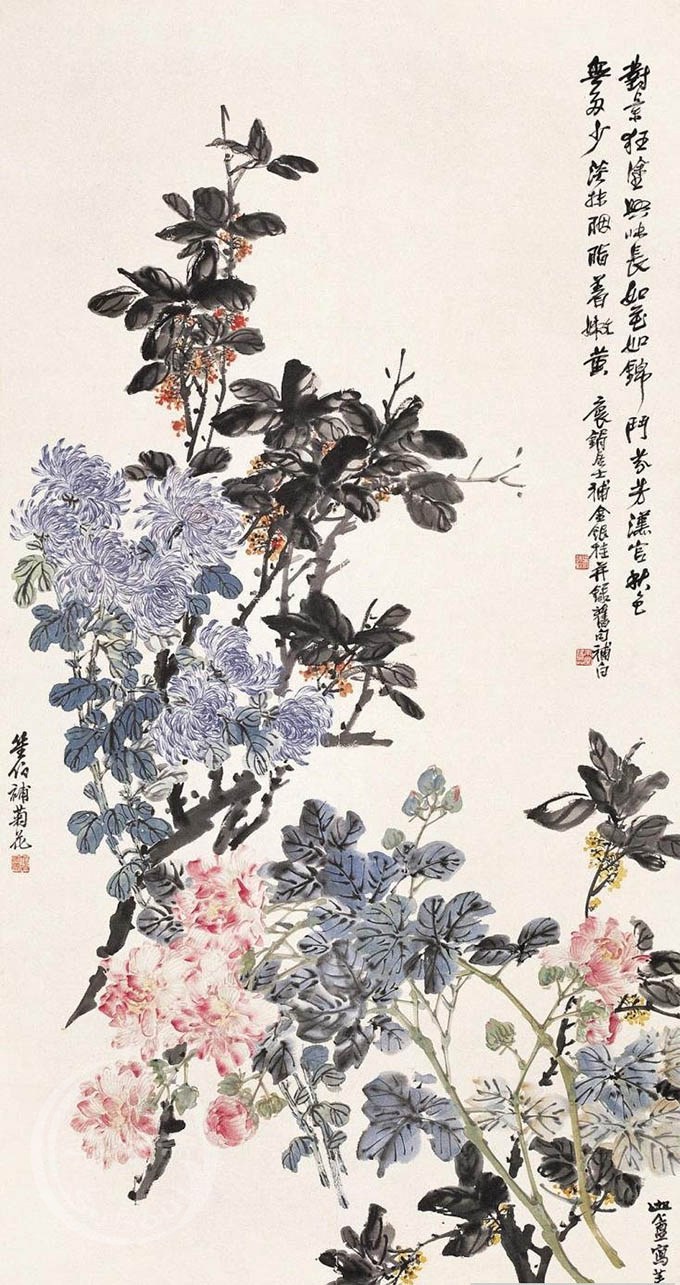 對景狂塗興味長如花如錦鬥芬芳漢宮秋色
無多少淡抹胭脂著嫩黃
居士補金銀桂并錄舊句補白
笙伯補菊花
盦寫